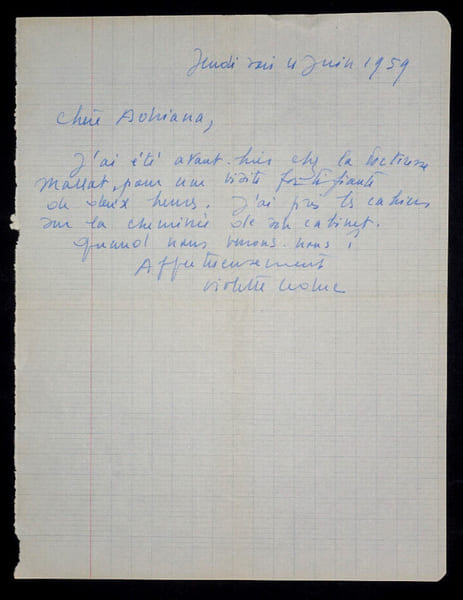 Jeudi soir 4 Juin 1959
Chère Adriana,
J'ai été avant-hier chez la Doctoresse
Massat, pour une visite fortifiante
de deux heures. J'ai pris les cahiers
sur la cheminée de son cabinet.
Quand nous verrons-nous ?
Affectueusement
Violette Leduc